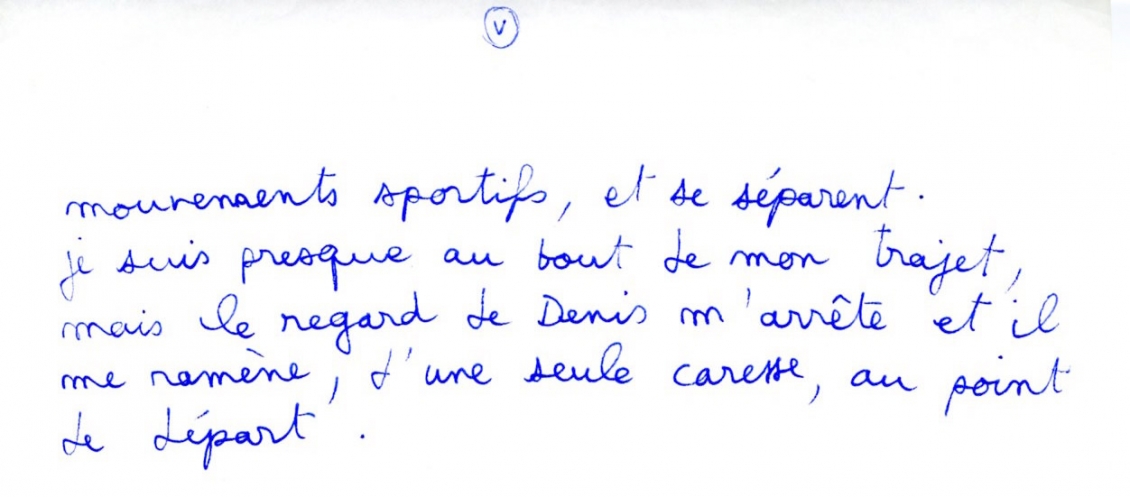 V
mouvements sportifs, et se séparent.
je suis presque au bout de mon trajet,
mais le regard de Denis m'arrête et il
me ramène, d'une seule caresse, au point
de départ.